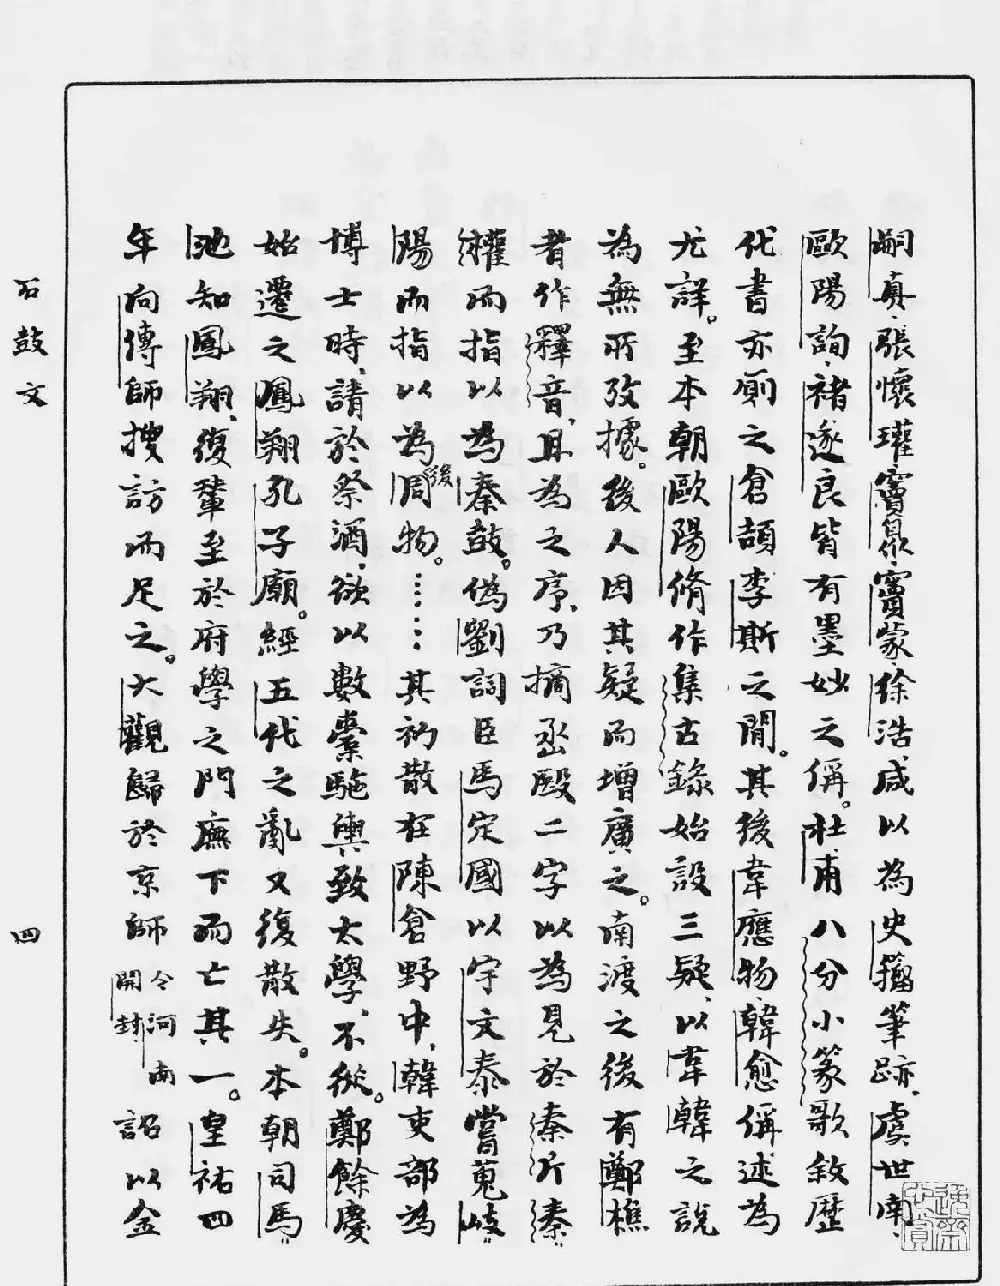 嗣真、張懷瓘、竇臮、竇蒙、徐浩咸以為史籀筆跡、虞世南、
歐陽詢、褚遂良皆有墨妙之稱。杜甫八分小篆歌敘歷
代書亦廁之倉頡李斯之間。其後韋應物、韓愈稱述為
尤詳。至本朝歐陽脩作集古錄始設三疑、以韋韓之說
為無所攷據。後人因其疑而增廣之。南渡之後有鄭樵
者作釋音、且為之序、乃摘丞殹二字以為見於秦斤秦
權而指以為秦鼓。偽劉詞臣馬定國以宇文泰嘗蒐岐
陽而指以為後周物。……其初散在陳倉野中、韓吏部為
博士時、請於祭酒、欲以數橐駝輿致太學、不從。鄭餘慶
始遷之鳳翔孔子廟。經五代之亂又復散失。本朝司馬
池知鳳翔、復輦至於府學之門廡下而亡其一。皇祐四
年向傳師搜訪而足之。大觀歸於京師今河南開封詔以金
石鼓文
四